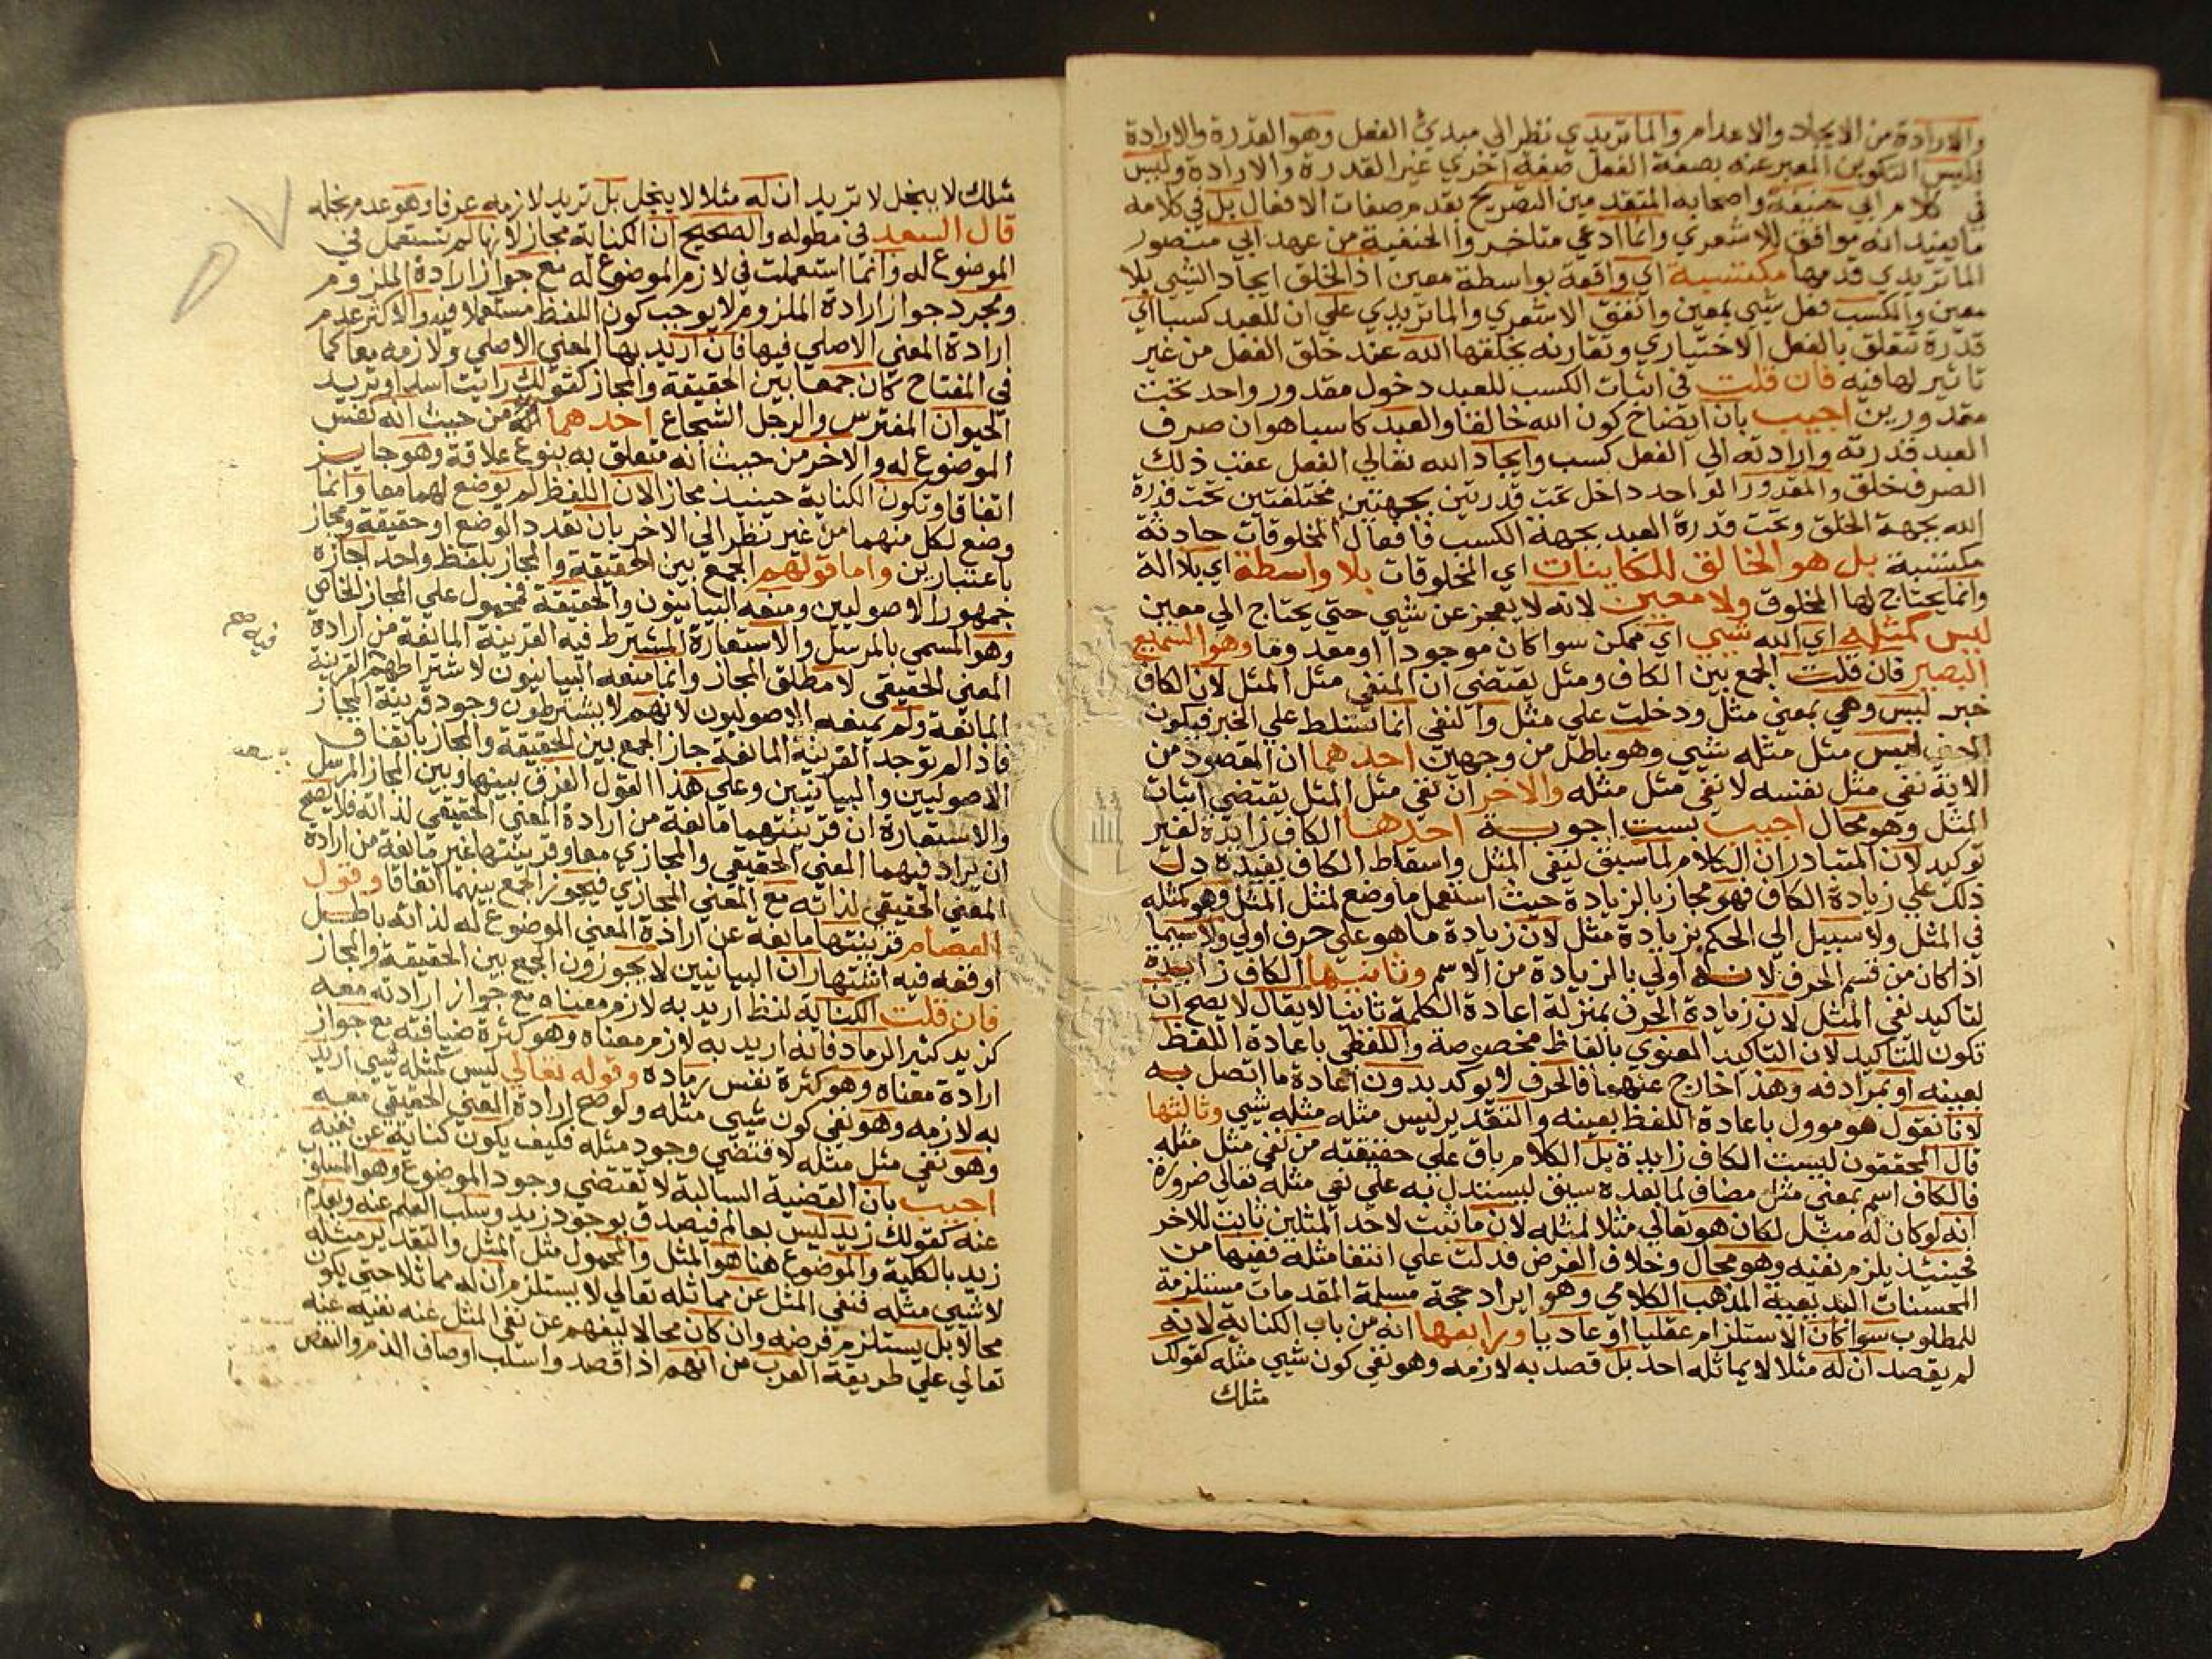 والارادة من الايجاد والاعدام والماتريدي نظر الي مبدئ الفعل وهو القدرة والارادة
فليس التكوين المعبر عنه بصفة الفعل صفة اخري غير القدرة والارادة وليس
في كلام ابي حنيفة واصحابه المتقدمين التصريح بقدم صفات الافعال بل في كلامه
ما يفيد انه موافق للاشعري وانما ادعي متاخروا الحنفية من عهد ابي منصور
الماتريدي قدمها مكتسبة اي واقعة بواسطة معين اذ الخلق ايجاد الشي بلا
معين والكسب فعل شي بمعين واتفق الاشعري والماتريدي علي ان للعبد كسبا اي
قدرة تتعلق بالفعل الاختياري وتقارنه بخلقها الله عند خلق الفعل من غير
تاثير لها فيه فان قلت في اثبات الكسب للعبد دخول مقدور واحد تحت
مقدورين اجيب بان ايضاح كون الله خالقا والعبد كاسبا هو ان صرف
العبد قدرته وارادته الي الفعل كسب وايجاد الله تعالي الفعل عقب ذلك
الصرف خلق والمقدور الواحد داخل تحت قدرتين بجهتين مختلفتين تحت قدرة
الله بجهة الخلق وتحت قدرة العبد بجهة الكسب فافعال المخلوقات حادثة
مكتسبة بل هو الخالق للكاينات اي المخلوقات بلا واسطة اي بلا الة
وانما يحتاج لها المخلوق ولا معين لانه لا يعجز عن شي حتي يحتاج الي معين
ليس كمثله اي الله شيي اي ممكن سوا كان موجودا او معدوما وهو السميع
البصير فان قلت الجمع بين الكاف ومثل يقتضي ان المنفي مثل المثل لان الكاف
خبر ليس وهي بمعني مثل ودخلت علي مثل والنفي انما تسلط علي الخبر فيكون
المعني ليس مثل مثله شيي وهو باطل من وجهين احدهما ان المقصود من
الاية نفي مثل نفسه لا نفي مثل مثله والاخر ان نفي مثل المثل يقتضي اثبات
المثل وهو محال اجيب بست اجوبة احدها الكاف زايدة لغير
توكيد لان المتبادر ان الكلام لما سبق لنفي المثل واسقاط الكاف يفيده دل
ذلك علي زيادة الكاف فهو مجاز بالزيادة حيث استعمل ما وضع لمثل المثل وهو كمثله
في المثل ولا سبيل الي الحكم بزيادة مثل لان زيادة ما هو علي حرف اولي ولا سيما
اذا كان من قسم الحرف لانه اولي بالزيادة من الاسم وثانيها الكاف زايدة
لتاكيد نفي المثل لان زيادة الحرف بمنزلة اعادة الكلمة ثانيا لا يقال لا يصح ان
تكون للتاكيد لان التاكيد المعنوي بالفاظ مخصوصة واللفظي باعادة اللفظ
بعينه او بمرادفه وهذا خارج عنهما فالحرف لا يوكد بدون اعادة ما اتصل به
لانا نقول هو موول باعادة اللفظ بعينه والتقدير ليس مثله مثله شيي وثالثها
قال المحققون ليست الكاف زايدة بل الكلام باق علي حقيقته من نفي مثل مثله
فالكاف اسم بمعني مثل مضاف لما بعده سيق ليستدل به علي نفي مثله تعالي ضرورة
انه لو كان له مثل لكان هو تعالي مثلا لمثله لان ما ثبت لاحد المثلين ثابت للاخر
فحينيذ يلزم نفيه وهو محال وخلاف الفرض فدلت علي انتفا مثله ففيها من
المحسنات البديعية المذهب الكلامي وهو ايراد حجة مسلمة المقدمات مستلزمة
للمطلوب سوا كان الاستلزام عقليا او عاديا ورابعها انه من باب الكناية لانه
لم يقصد ان له مثلا لا يماثله احد بل قصد به لازمه وهو نفي كون شيي مثله كقولك
مثلك
مثلك لا يبخل لا تريد ان له مثلا لا يبخل بل تريد لازمه عرفا وهو عدم بخله
قال السعد في مطوله والصحيح ان الكناية مجاز لانها لم تستعمل في
الموضوع له وانما استعملت في لازم الموضوع له مع جواز ارادة الملزوم
ومجرد جواز ارادة الملزوم لا يوجب كون اللفظ مستعملا فيه والاكثر عدم
ارادة المعني الاصلي فيها فان اريد بها المعني الاصلي ولازمه معا كما
في المفتاح كان جمعا بين الحقيقة والمجاز كقولك رايت اسدا وتريد
الحيوان المفترس والرجل الشجاع احدهما من حيث انه نفس
الموضوع له والاخر من حيث انه متعلق به بنوع علاقة وهو جايز
اتفاقا وتكون الكناية حينيذ مجازا لان اللفظ لم يوضع لهما معا وانما
وضع لكل منهما من غير نظر الي الاخر بان تعدد الوضع او حقيقة ومجاز
باعتبارين واما قولهم الجمع بين الحقيقة والمجاز بلفظ واحد اجازه
جمهور الاصوليين ومنعه البيانيون والحقيقة فمحمول علي المجاز الخاص
وهو المسمي بالمرسل والاستعارة المشترط فيه القرينة المانعة من ارادة
المعني الحقيقي لا مطلق المجاز وانما منعه البيانيون لاشتراطهم القرينة
المانعة ولم يمنعه الاصوليون لانهم لا يشترطون وجود قرينة المجاز
فاذا لم توجد القرينة المانعة جاز الجمع بين الحقيقة والمجاز باتفاق
الاصوليين والبيانيين وعلي هذا القول الفرق بينها وبين المجاز المرسل
والاستعارة ان قرينتهما مانعة من ارادة المعني الحقيقي لذاته فلا يصح
ان يراد فيهما المعني الحقيقي والمجازي معا وقرينتها غير مانعة من ارادة
المعني الحقيقي لذاته مع المعني المجازي فيجوز الجمع بينهما اتفاقا وقول
العصام قرينتها مانعة عن ارادة المعني الموضوع له لذاته باطل
اوقعه فيه اشتهار ان البيانيين لا يجوزون الجمع بين الحقيقة والمجاز
فان قلت الكناية لفظ اريد به لازم معناه مع جواز ارادته معه
كزيد كثير الرماد فانه اريد به لازم معناه وهو كثرة ضيافته مع جواز
ارادة معناه وهو كثرة نفس رماده وقوله تعالي ليس كمثله شيي اريد
به لازمه وهو نفي كون شيي مثله ولو صح ارادة المعني الحقيقي معه
وهو نفي مثل مثله لاقتضي وجود مثله فكيف يكون كناية عن نفيه
اجيب بان القضية السالبة لا تقتضي وجود الموضوع وهو المسلوب
عنه كقولك زيد ليس بعالم فيصدق بوجود زيد وسلب العلم عنه وبعدم
زيد بالكلية والموضوع هنا هو المثل والمحمول مثل المثل والتقدير مثله
لا شيي مثله فنفي المثل عن مماثله تعالي لا يستلزم ان له مماثلا حتي يكون
محالا بل يستلزم فرضه وان كان محالا ليفهم عن نفي المثل عنه نفيه عنه
تعالي علي طريقة العرب من انهم اذا قصدوا سلب اوصاف الذم والنقص
فيه صح